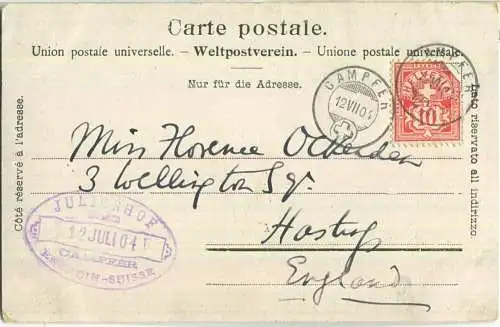 Carte postale.
Union postale universelle. – Weltpostverein. – Unione postale universale.
Nur für die Adresse.
Côté réservé à l'adresse.
Lato riservato all indirizzo
CAMPFER
12 VII 04
CAMPFER
HELVETIA
10
Miss Florence
3 Wellington Sqr.
Hastings
England
JULIERHOF
12 JULI 04
CAMPFER
ENGADIN-SUISSE